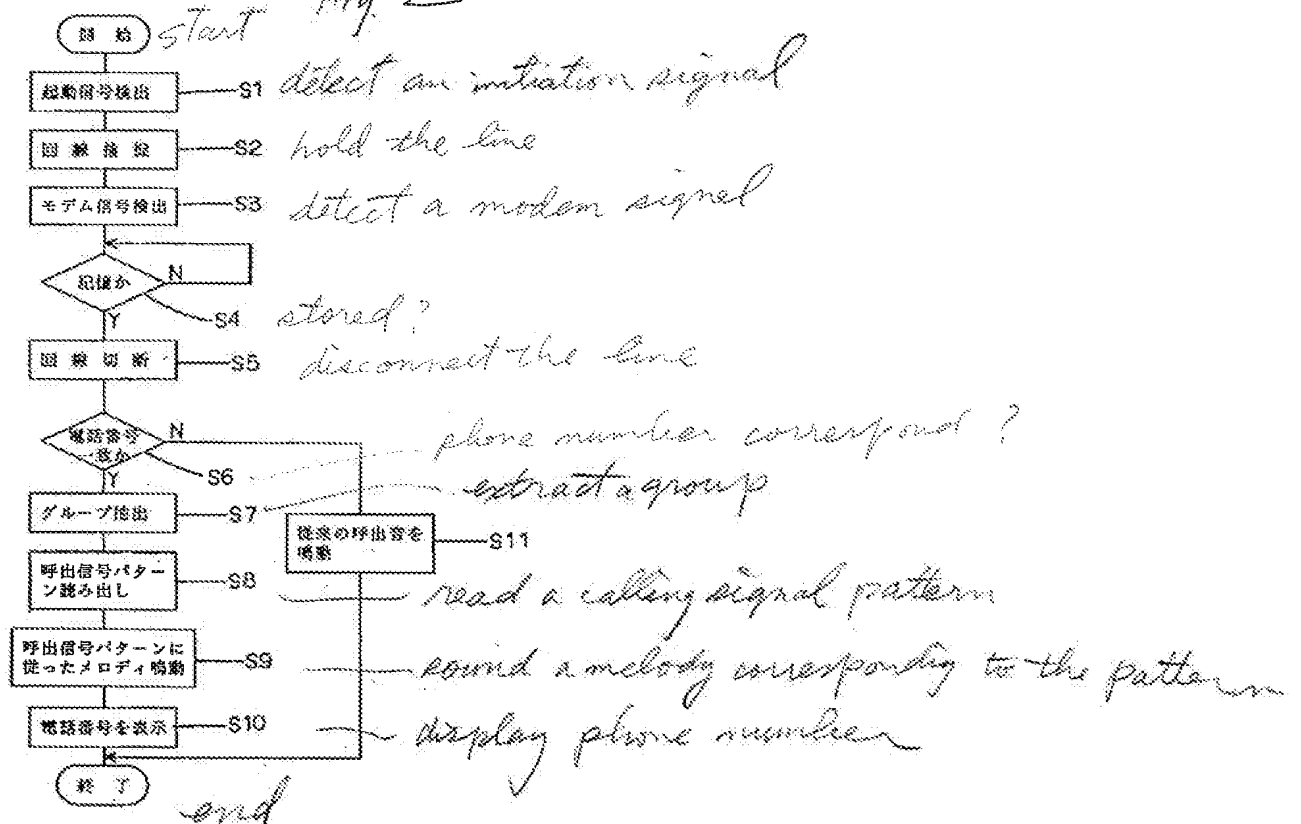 Fig. 2
開始 start
起動信号検出 S1 detect an initiation signal
回線接設 S2 hold the line
モデム信号検出 S3 detect a modem signal
記憶か N
Y S4 stored?
回線切断 S5 disconnect the line
電話番号 N phone number correspond?
一致か
Y S6
グループ抽出 S7 extract a group
従来の呼出音を S11
鳴動
呼出信号パター S8 read a calling signal pattern
ン読み出し
呼出信号パターンに S9 sound a melody correspondig to the pattern
従ったメロディ鳴動
電話番号を表示 S10 display phone number
終了 end